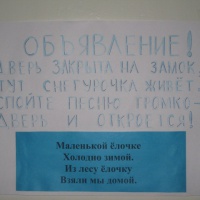 ОБЪЯВЛЕНИЕ!
ДВЕРЬ ЗАКРЫТА НА ЗАМОК,
ТУТ СНЕГУРОЧКА ЖИВЁТ.
СПОЙТЕ ПЕСНЮ ГРОМКО-
ДВЕРЬ И ОТКРОЕТСЯ!
Маленькой ёлочке
Холодно зимой.
Из лесу ёлочку
Взяли мы домой.